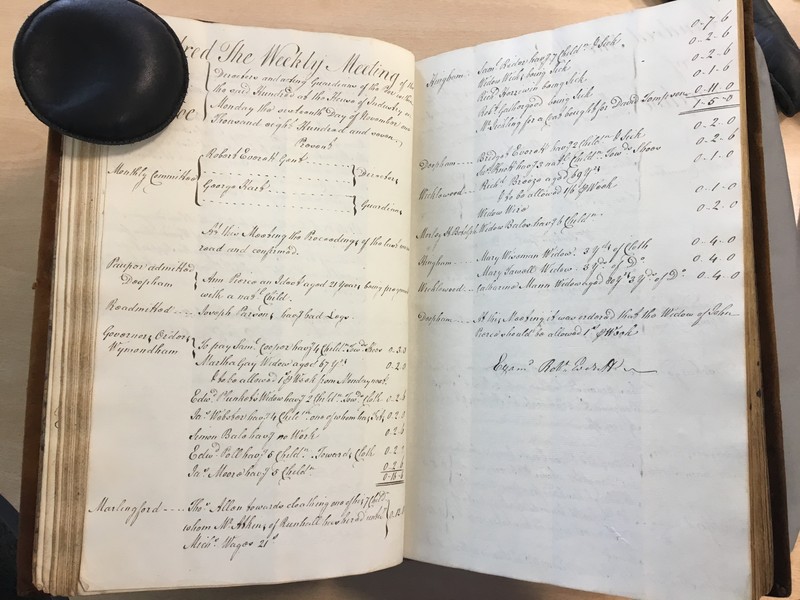 dred The Weekly Meeting of the
Directors and acting Guardians of the Poor within
the said Hundred at the House of Industry on
Monday the sixteenth Day of November one
Thousand eight Hundred and seven
Present
Monthly Committee
Robert Everett Gent.
Directors
George Hart
Guardians
At this Meeting the Proceedings of the last were
read and confirmed.
Pauper admitted
Deopham
Ann Pierce an Ideot aged 21 Years being pregnant
with a natl. Child.
Readmitted Joseph Parsons havg. bad Legs.
Governors Orders
Wymondham
To pay Saml. Cooper havg. 4 Childn. Towds. Shoes 0.3.0
Martha Gay Widow aged 67 Yrs. 0.2.0
& to be allowed 1s. P Week from Monday next.
Edwd. Plunkets Widow havg. 2 Childn. Towds. Cloth 0.2.6
Jas. Webster havg. 4 Childn. one of whom has Fits 0.2.0
Simon Beale havg. no Work 0.2.6
Edwd. Poll havg. 5 Childn. Towards Cloth 0.2.
Jas. Moore havg. 5 Childn. 0.2.6
Marlingford Thos. Allen towards cloathing one of his 7 Childn.
whom Mr. of Runhall has hired until
Michs. Wages 21s
Hingham Saml. havg. 7 Childn. & Sick 0-7-6
Widow being Sick 0-2-6
being sick 0-2-6
Robt. being Sick 0-1-6
Mr. for a Coat bought for David Tompson 0-11-0
1-5-0
Deopham Bridget Everett havg. 2 Childn. & Sick 0-2-0
havg. 3 natl. Childn. Towds. Shoes 0-2-6
Wicklewood Richd. Breeze aged 69 Yrs. 0-1-0
& to be allowed 1/6 P Week
Widow Wire 0-1-0
Morley St. Botolph Widow Bales havg. 6 Childn. 0-2-0
Hingham Mary Wiseman Widow 3 Yds. of Cloth 0-4-0
Mary Tawell Widow 3 Yds. of Do. 0-4-0
Wicklewood Catharine Mann Widow aged 80 Yrs. 3 Yds. of Do. 0-4-0
Deopham At this Meeting it was ordered that the Widow of John
Pierce should be allowed 1s. P Week
Examd. Robt. Everett